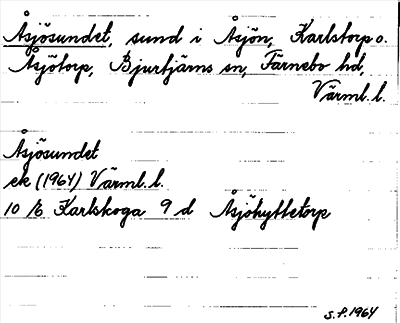 Åsjösundet, sund i Åsjön, Karlstorp o.
Åsjötorp, Bjurtjärns sn, Färnebo hd,
Värml. l.
Åsjösundet
ek (1964) Värml. l.
10 /6 Karlskoga 9 d Åsjöhyttetorp
S.P. 1964